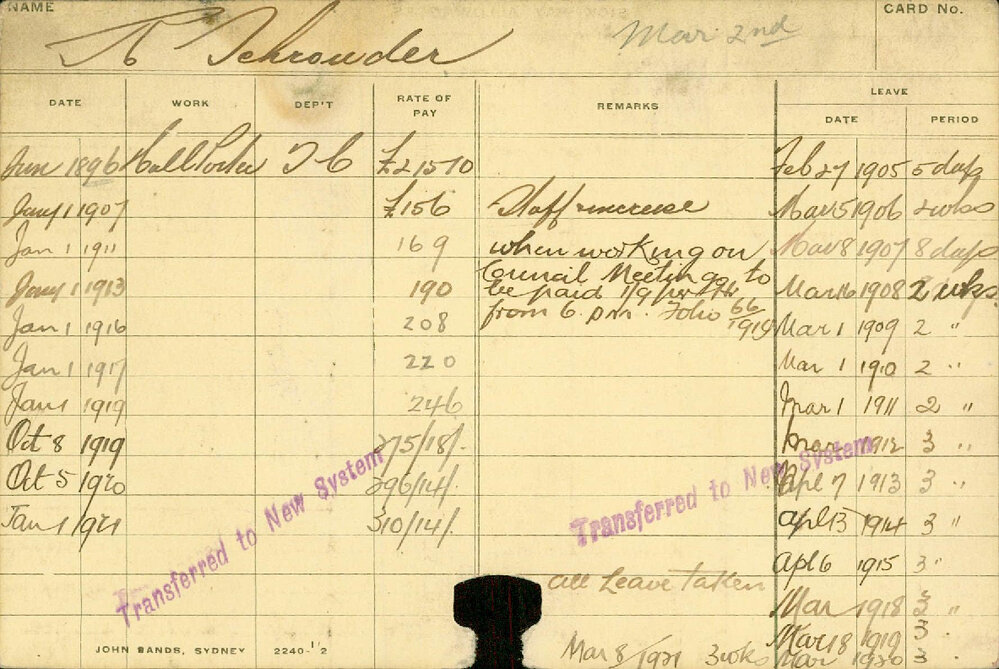 NAME
CARD No.
Schrowder
Mar 2nd
DATE WORK DEP'T RATE OF PAY REMARKS LEAVE
DATE PERIOD
June 1896 Hall Porter T C Feb 27 1905 5 days
Jany 1 1907 £156 Staff increase Mar 5 1906 2 wks
Jan 1 1911 169 when working on Mar 8 1907 8 days
Council Meetings to
Jany 1 1913 190 be paid 1/9 per Mar 16 1908 2 wks.
Jan 1 1916 208 from 6 p.m. Folio 66/1919 Mar 1 1909 2 "
Jan 1 1917 220 Mar 1 1910 2 "
Jan 1 1919 246 Mar 1 1911 2 "
Oct 8 1919 275/18/- 1912 3 "
Oct 5 1920 296/14/- Apl 7 1913 3 "
Jan 1 1921 310/14/- Apl 13 1914 3 "
Transferred to New System
Transferred to New System
Apl 6 1915 3 "
all Leave Taken
Mar 1918 3 "
Mar 18 1919 3 "
Mar 8/1921 3 wks Mar 1920 3 "
JOHN SANDS, SYDNEY 2240-1'2